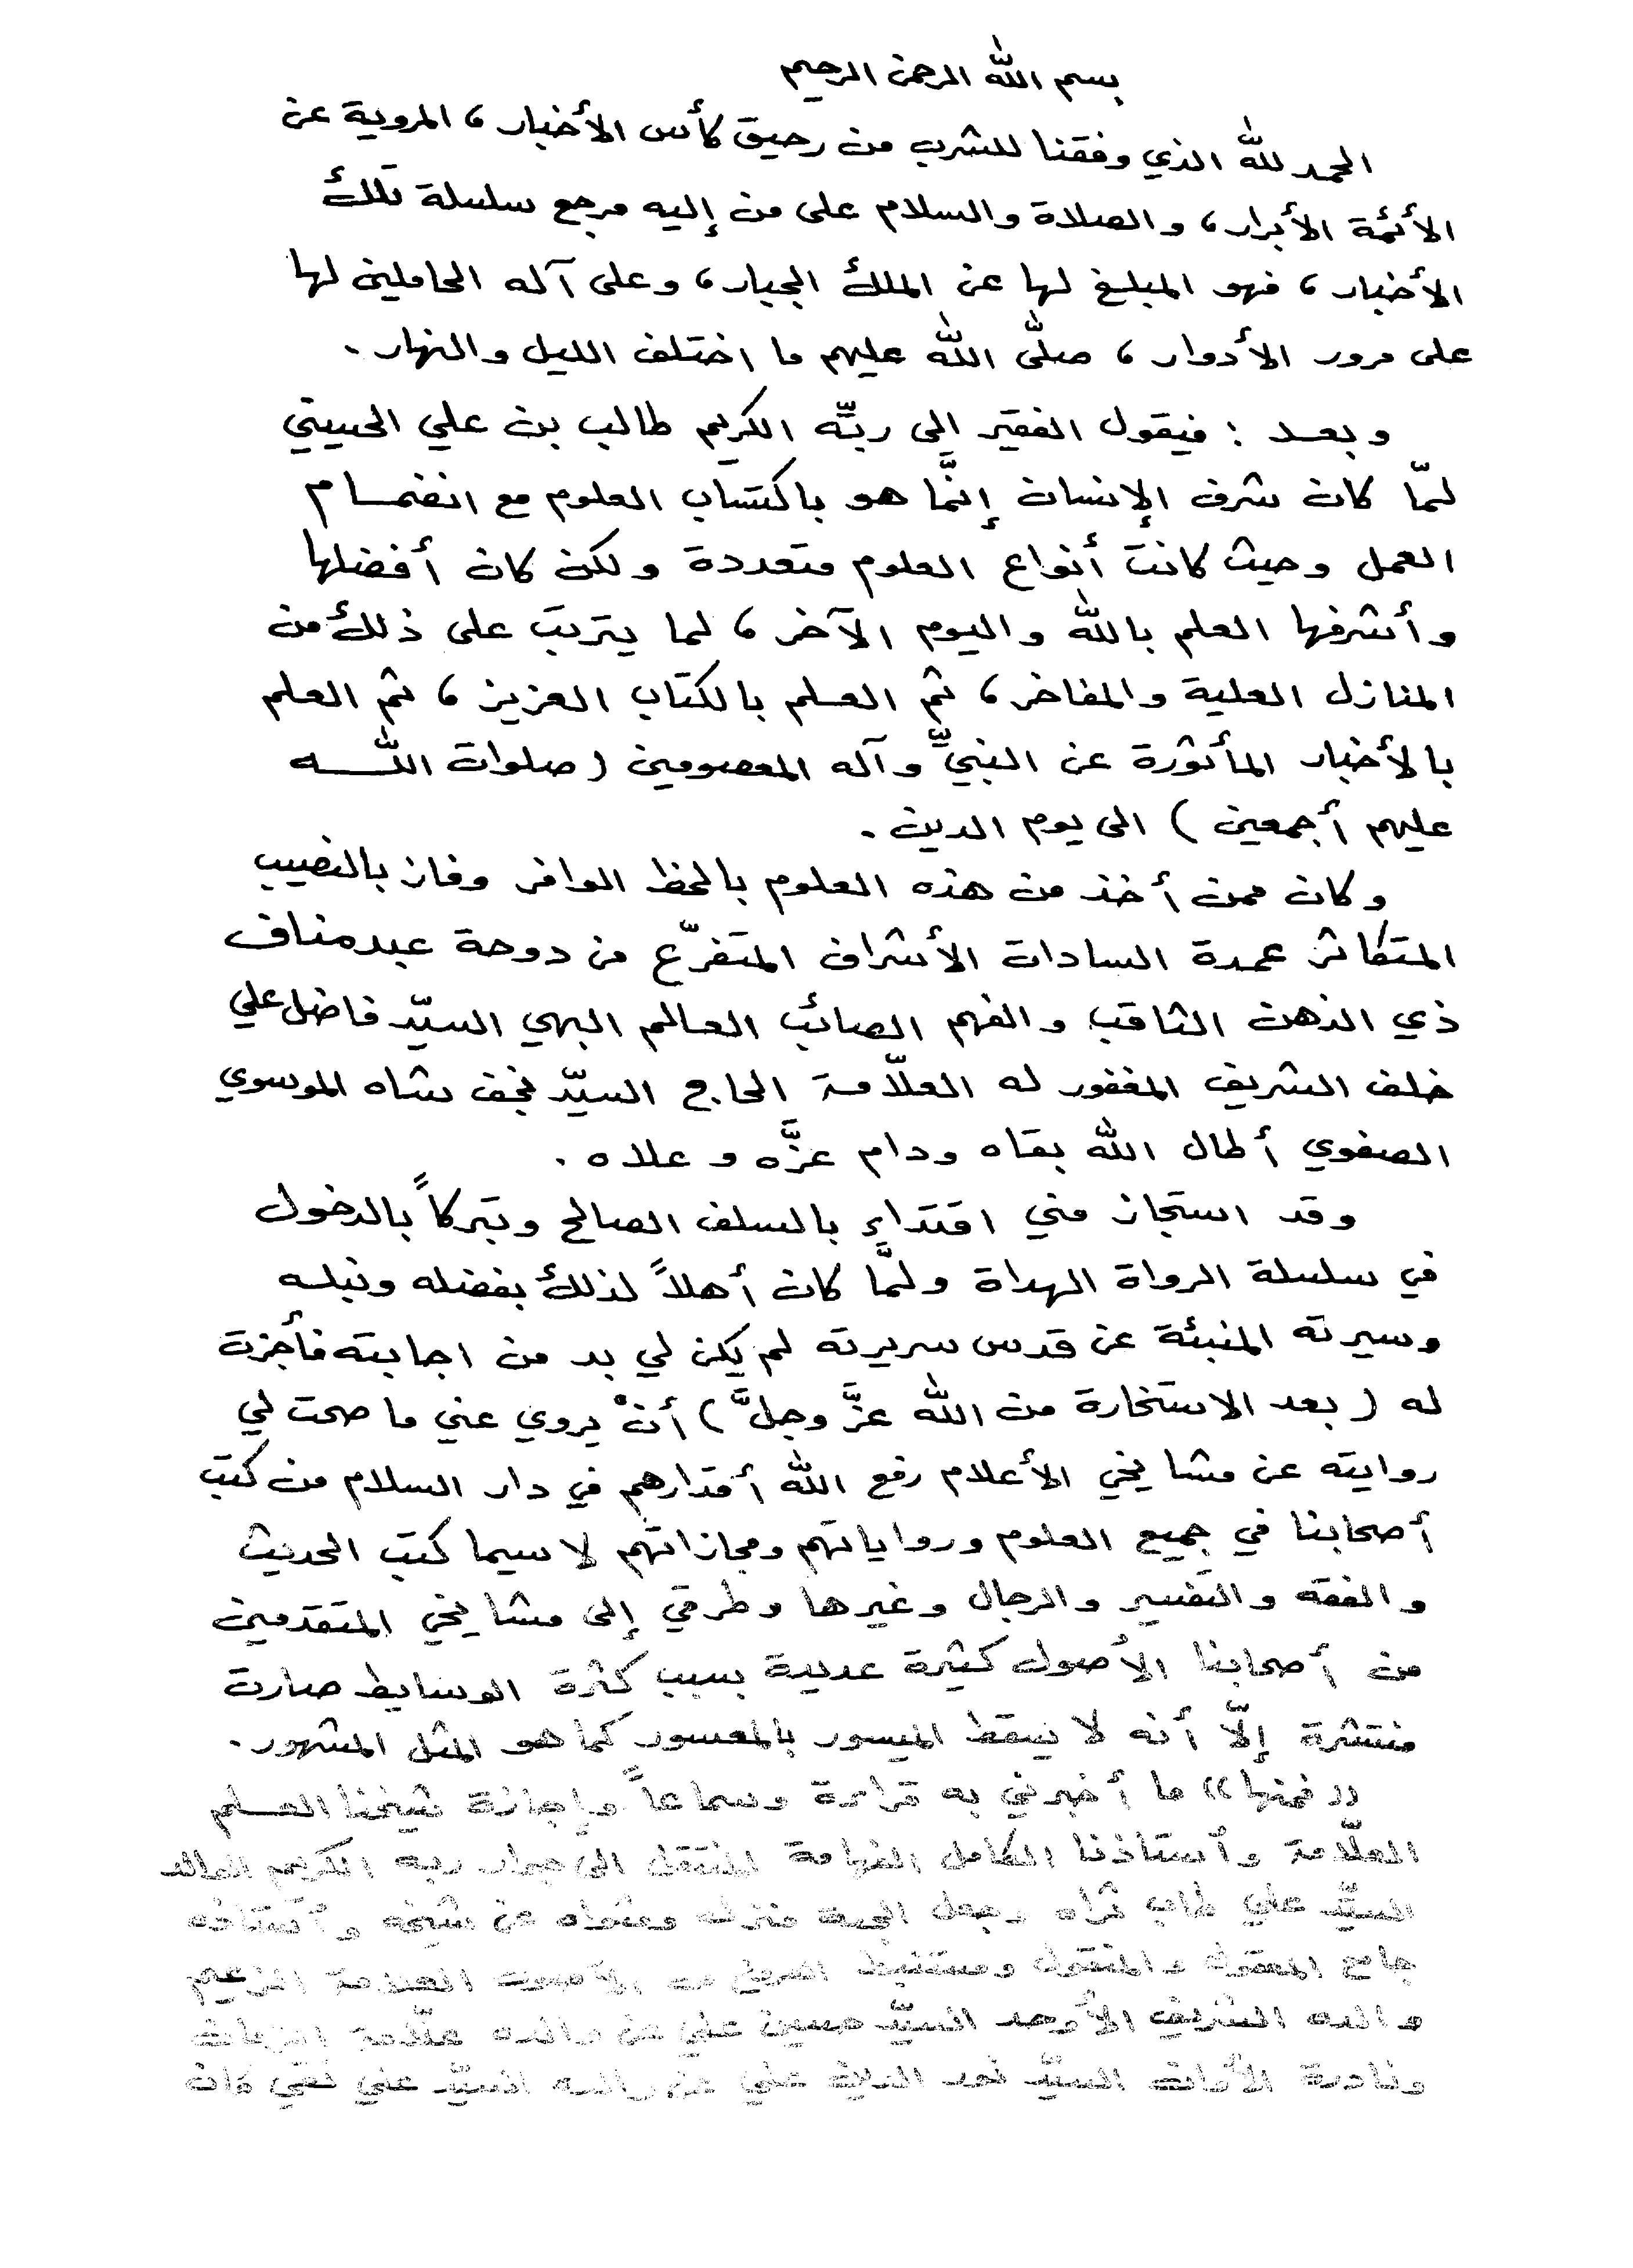 بسم الله الرحمن الرحيم
الحمد لله الذي وفقنا للشرب من رحيق كأس الأخبار ، المروية عن
الأئمة الأبرار ، والصلاة والسلام على من إليه مرجع سلسلة تلك
الأخبار ، فهو المبلغ لها عن الملك الجبار ، وعلى آله الحاملين لها
على مرور الأدوار ، صلى الله عليهم ما اختلف الليل والنهار .
وبعد : فيقول الفقير الى ربّه الكريم طالب بن علي الحسيني
لمّا كان شرف الإنسان إنّما هو باكتساب العلوم مع انضمام
العمل وحيث كانت أنواع العلوم متعددة ولكن كان أفضلها
وأشرفها العلم بالله واليوم الآخر ، لما يترتب على ذلك من
المنازل العلية والمفاخر ، ثم العلم بالكتاب العزيز ، ثم العلم
بالأخبار المأثورة عن النبيّ وآله المعصومين ( صلوات الله
عليهم أجمعين ) الى يوم الدين .
وكان ممن أخذ من هذه العلوم بالحظ الوافر وفاز بالنصيب
المتكاثر عمدة السادات الأشراف المتفرّع من دوحة عبد مناف
ذي الذهن الثاقب والفهم الصائب العالم البهي السيّد فاضل علي
خلف الشريف المغفور له العلّامة الحاج السيّد نجف شاه الموسوي
الصفوي أطال الله بقاه ودام عزَّه وعلاه .
وقد استجاز مني اقتداءٍ بالسلف الصالح وتبركاً بالدخول
في سلسلة الرواة الهداة ولمَّا كان أهلاً لذلك بفضله ونبله
وسيرته المنبئة عن قدس سريرته لم يكن لي بد من اجابته فأجزت
له ( بعد الاستخارة من الله عزَّ وجلَّ ) أنْ يروي عني ما صحت لي
روايته عن مشايخي الأعلام رفع الله أقدارهم في دار السلام من كتب
أصحابنا في جميع العلوم ورواياتهم ومجازاتهم لا سيما كتب الحديث
والفقه والتفسير والرجال وغيرها وطرقي إلى مشايخي المتقدمين
من أصحابنا الأصول كثيرة عديدة بسبب كثرة الوسايط صارت
منتشرة إلّا أنه لا يسقط الميسور بالمعسور كما هو المثل المشهور .
(( فمنها )) ما أخبرني به قراءة وسماعاً وإجازة شيخنا العلم
العلّامة وأستاذنا الكامل الفهامة المنتقل الى جوار ربه الكريم الوالد
السيّد علي طاب ثراه وجعل الجنة منزله ومثواه عن شيخه وأستاذه
جامع المعقول والمنقول ومستنبط الفروع من الأصول العلامة الزعيم
والده الشريف الأوحد السيّد حسين علي عن والده علّامة الزمان
ونادرة الأوان السيّد نور الدين علي عن والده السيّد علي نقي